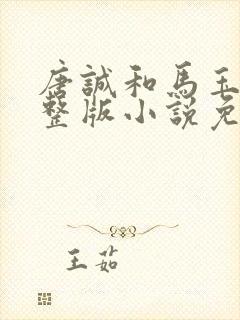 唐誠和馬玉
整版小說免
王茹